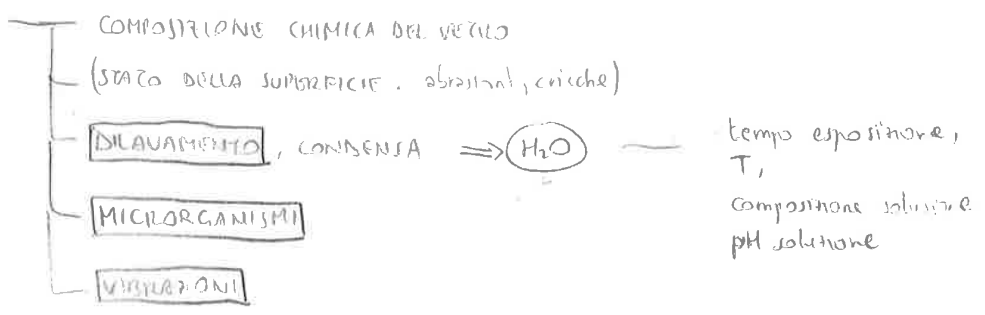 COMPOSIZIONE CHIMICA DEL VETRO
(STATO DELLA SUPERFICIE. abrasioni, cricche)
DILAVAMENTO, CONDENSA ⇒ H₂O — tempo esposizione,
T,
composizione soluzione
pH soluzione
MICRORGANISMI
VIBRAZIONI